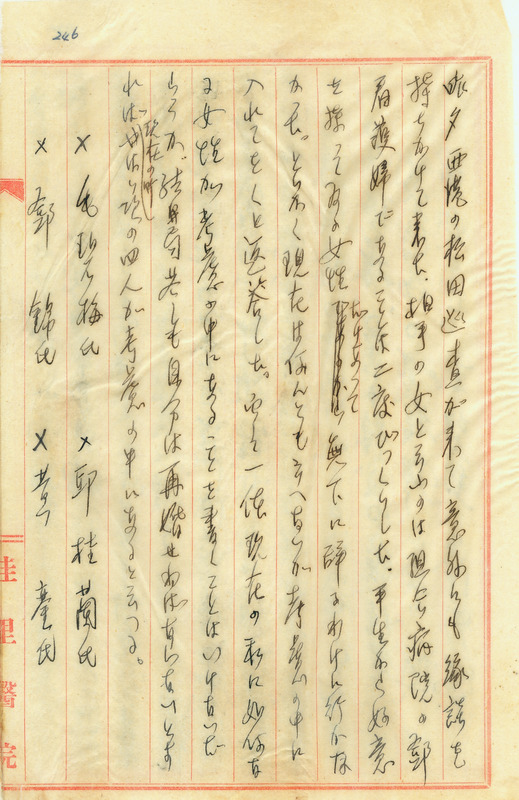 246
昨夕 西港の松田巡査が来て意外にも縁談を
持ちかけて来た。相手の女と云ふのは組合病院の郭
看護婦であることは二度びっくりした。平生から好意
を持って居る女性だけあって無下に断るわけに行かな
かった。とにかく現在は何んとも云へないが考慮の中に
入れておくと返答した。一体現在の私に
女性が考慮の中にあることを書くことはいけないだ
らうが、結局若しも自分は再婚せねばならないとす
れば現在の所次の四人が考慮の中にあると云へる。
× 毛碧梅氏 × 邱桂蘭氏
× 郭 錦氏 × 黄 氏
佳里醫院